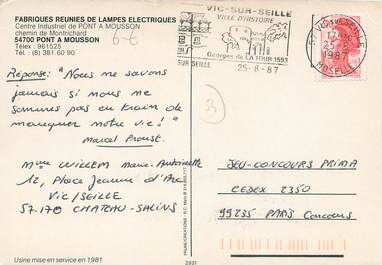 FABRIQUES REUNIES DE LAMPES ELECTRIQUES
Centre Industriel de PONT A MOUSSON
chemin de Montrichard
54700 PONT A MOUSSON
Télex : 961525
Tél. : (8) 381 60 90
VIC-SUR-SEILLE
VILLE D'HISTOIRE
Georges de LA TOUR 1593
SUR SEILLE
25-8-87
57 VIC SUR SEILLE
25-8
1987
MOSELLE
Réponse: "Nous ne savons
jamais si nous ne
sommes pas en train de
manquer notre vie!"
Marcel Proust.
53
Mme WILLEM Marie-Antoinette
12, Place Jeanne d'Arc
Vic/SEILLE
57.170 CHATEAU-SALINS
JEU-CONCOURS PRIMA
CEDEX 2350
99235 PARIS Concours
Usine mise en service en 1981
2931